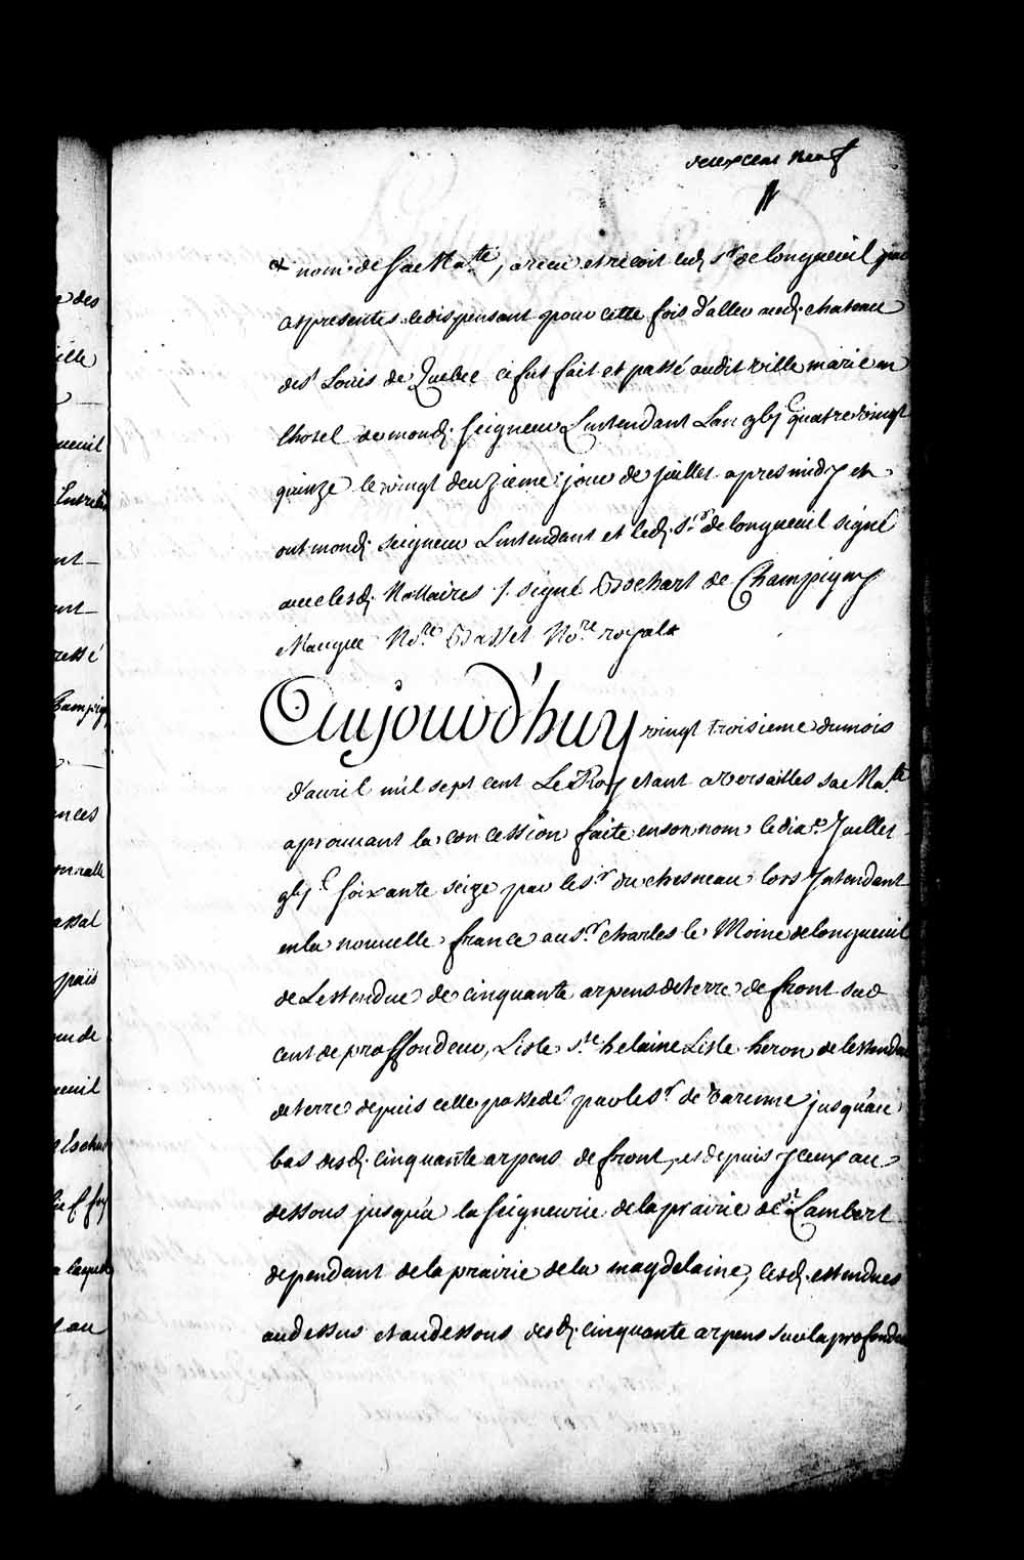 deux cent neuf
et nom de Sa Ma.té, a receu et recoit led. s.r de longueuil par
ces presentes le dispensant pour cette fois d'aller aud. chateau
de s.t Louis de Quebec ce fut fait et passé audit ville marie en
lhotel de mond. seigneur Lintendant Lan gbj.C quatre vingt
quinze le vingt deuzieme jour de juillet apres midy et
ont mond. seigneur Lintendant et led. s.r de longueuil signé
avec lesd. Nottaires /. signé Bochart de Champigny
Maugue No.re Basset No.re royal
Aujourd'huy vingt troisieme du mois
d'avril mil sept cent Le Roy etant a versailles sa Ma.té
aprouvant la concession faite en son nom le dix.e Juillet
gbj.C soixante seize par le s.r du chesneau lors Intendant
en la nouvelle france au s.r charles le Moine de longueuil
de Lestendue de cinquante arpens de terre de front sur
cent de proffondeur, Lisle s.te helaine Lisle heron de lestendue
de terre depuis celle possedé par le s.r de varenne jusqu'au
bas desd. cinquante arpens de front, et depuis yceux au
dessous jusqu'a la seigneurie de la prairie de s.t Lambert
dependant de la prairie de la magdelaine, lesd. estendues
au dessus et au dessous desd. cinquante arpens sur la profondeur
des
ille
ueuil
nt
nt
ressé
nces
assal
païs
eu de
ueuil
au